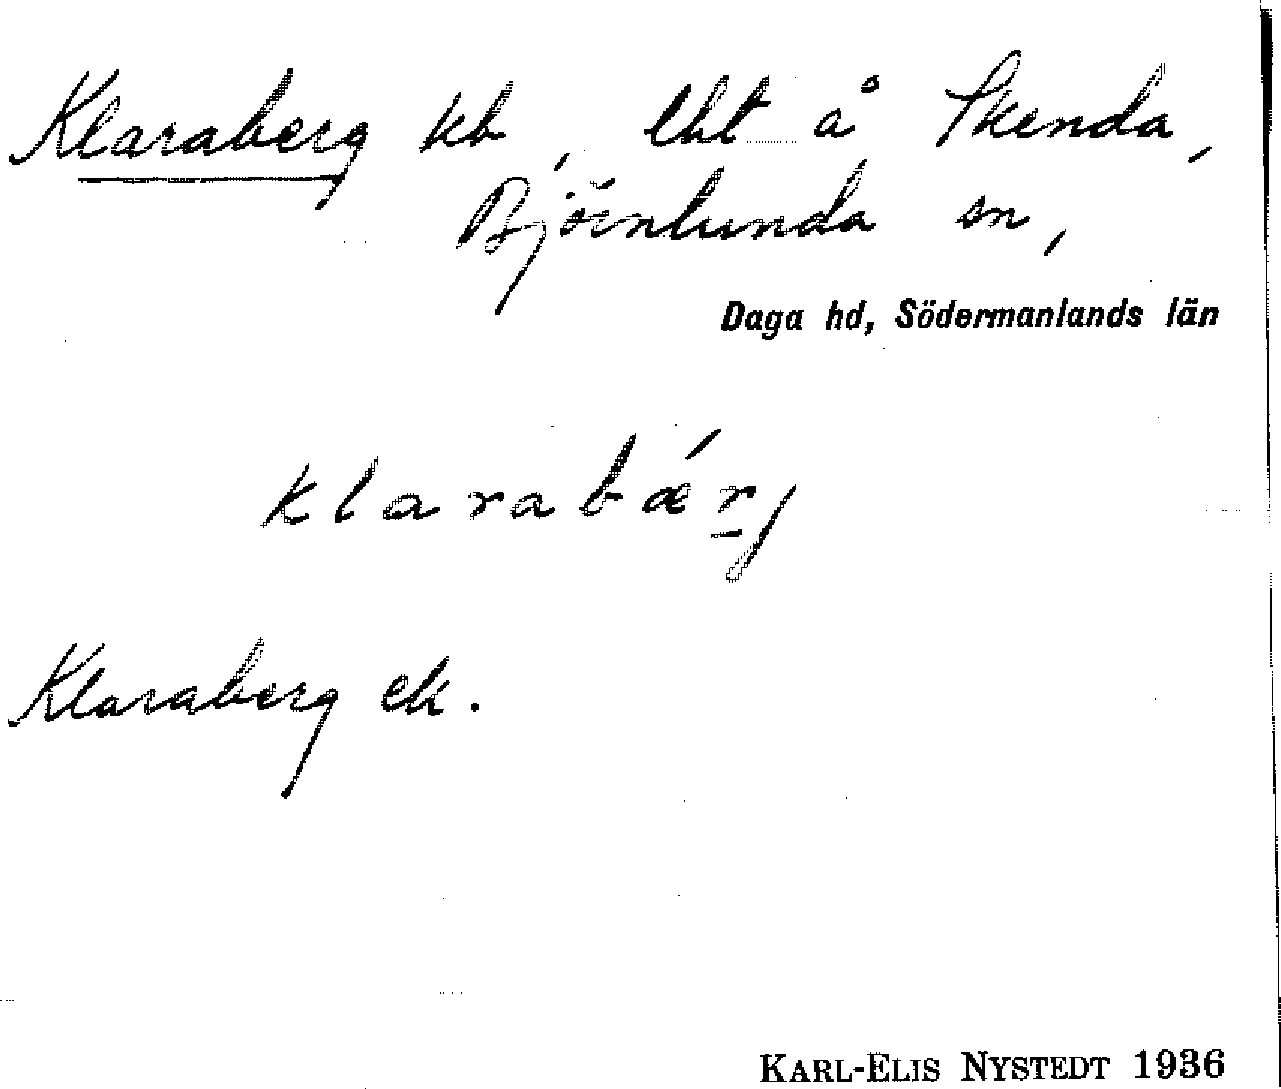 Klaraberg kb, lht å Skenda,
Björnlunda sn,
Daga hd, Södermanlands län
klarabǽr̲j
Klaraberg ek.
KARL-ELIS NYSTEDT 1936